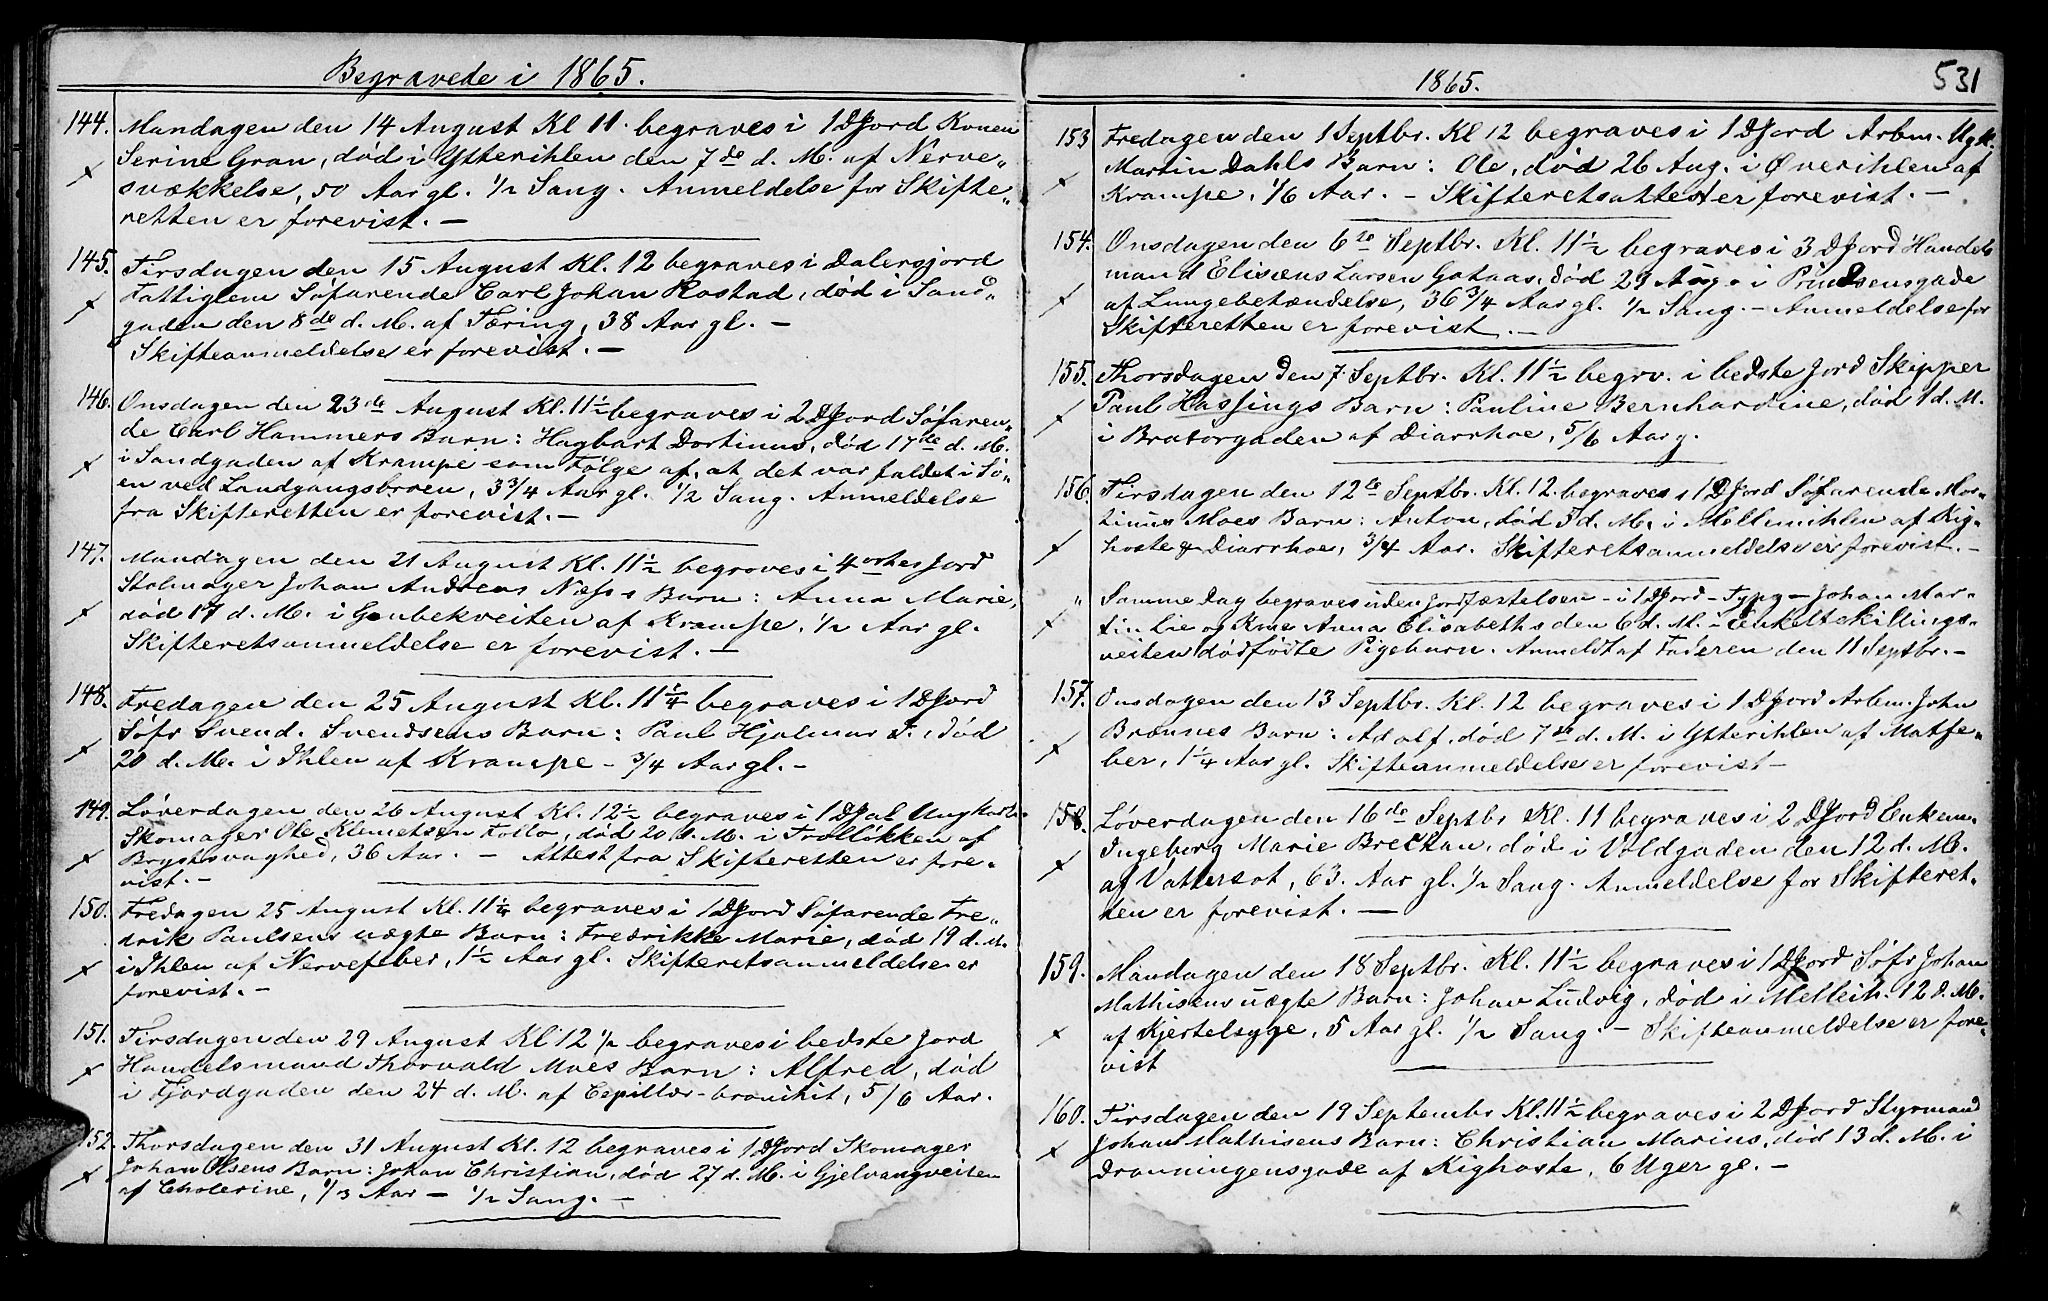 Begravede i 1865.
144. Mandagen den 14 August Kl 11. begraves i 1 D Jord Konen
Serine Gran, død i Ytterihlen den 7de d. M. af Nerve„
svækkelse, 50 Aar gl. ½ Sang. Anmeldelse for Skifte„
retten er forevist. —
145. Tirsdagen den 15 August Kl. 12 begraves i Dalersjord
Fattiglem Søfarende Carl Johan Rostad, død i Sand„
gaden den 8de d. M. af Tæring, 38 Aar gl. —
Skifteanmeldelse er forevist. —
146. Onsdagen den 23de August Kl. 11½ begraves i 2 D Jord Søfaren„
de Carl Hammers Barn: Hagbart Dortinus, død 17de d. M.
i Sandgaden af Krampe som Følge af, at det var faldet i Sø„
en ved Landgangsbroen, 3¾ Aar gl. ½ Sang. Anmeldelse
fra Skifteretten er forevist. —
147. Mandagen den 21 August Kl. 11½ begraves i 4 Jord
Stolmager Johan Andreas Næss's Barn: Anna Marie,
død 17 d. M. i Gaubekveiten af Krampe, ½ Aar gl.
Skifteretsanmeldelse er forevist. —
148. Fredagen den 25 August Kl. 11¼ begraves i 1 D Jord
Søfr Svend. Svendsens Barn: Paul Hjalmar S., død
20 d. M. i Ihlen af Krampe — ¾ Aar gl. —
149. Løverdagen den 26 August Kl. 12½ begraves i 1 D Ungkarl
Skomager Ole Klemetsen Follo, død 20 d. M. i Trolløkken af
Brystsvaghed, 36 Aar. — Attest fra Skifteretten er fore„
vist. —
150. Fredagen 25 August Kl. 11¼ begraves i 1 D Jord Søfarende Fre„
drik Paulsens uægte Barn: Fredrikke Marie, død 19 d. M.
i Ihlen af Nervefeber, 1½ Aar gl. Skifteretsanmeldelse er
forevist. —
151. Tirsdagen den 29 August Kl 12 ½ begraves i bedste Jord
Handelsmand Thorvald Moes Barn: Alfred, død
i Fjordgaden den 24 d. M. af Capillær-bronchit, 5/6 Aar.
152. Thorsdagen den 31 August Kl. 12 begraves i 1 D Jord Skomager
Johan Olsens Barn: Johan Christian, død 27 d. M. i Gjelvangveiten
af Cholerine, 1/3 Aar — ½ Sang. —
1865.
531
153 Fredagen den 1 Septbr. Kl 12 begraves i 1 D Jord Arbm. Ugk.
Martin Dahls Barn: Ole, død 26 Aug. i Øverihlen af
Krampe, 1/6 Aar. — Skifteretsattest er forevist. —
154. Onsdagen den 6te Septbr. Kl. 11½ begraves i 3 D Jord Handels
mand Elisæus Larsen Gataas, død 29 Aug. i Prindsensgade
af Lungebetændelse, 36¾ Aar gl. ½ Sang. — Anmeldelse for
Skifteretten er forevist. —
155. Thorsdagen den 7. Septbr. Kl. 11½ begrv. i bedste Jord Skipper
Paul Hassings Barn: Pauline Bernhardine, død 1 d. M.
i Bratørgaden af Diarrhoe, 5/6 Aar g.
156. Tirsdagen den 12te Septbr. Kl. 12 begraves i 1 D Jord Søfarende Mor„
tinus Moes Barn: Anton, død 5 d. M. i Mellemihlen af Kig„
hoste & Diarrhoe, ¾ Aar. Skifteretsanmeldelse er forevist. —
„ Samme Dag begraves uden Jordfæstelsen — i 1 D Jord — Typg — Johan Mar„
tin Lie og Kone Anna Elisabeths den 6 d. M. i Enkeltskillings„
veiten dødfødte Pigebarn. Anmeldt af Faderen den 11 Septbr. —
157. Onsdagen den 13 Septbr. Kl. 12 begraves i 1 D Jord Arbm. John
Brønnes Barn: Adolf, død 7de d. M. i Ytterihlen af Matfe„
ber, 1¼ Aar gl. Skifteanmeldelse er forevist —
158. Løverdagen den 16de Septbr Kl. 11 begraves i 2 D Jord Enkem.
Ingeborg Marie Brechan, død i Voldgaden den 12 d. M.
af Vattersot, 63. Aar gl. ½ Sang. Anmeldelse for Skifteret„
ten er forevist. —
159. Mandagen den 18 Septbr. Kl. 11½ begraves i 1 D Jord Søfr Johan
Mathisens uægte Barn: Johan Ludvig, død i Melleih. 12 d. M.
af Kjertelsyge, 5 Aar gl. ½ Sang — Skifteanmeldelse er fore„
vist
160. Tirsdagen den 19 Septembr Kl. 11½ begraves i 2 D Jord Styrmand
Johan Mathisens Barn: Christian Marius, død 13 d. M. i
Dronningensgade af Kighoste, 6 Uger gl. —